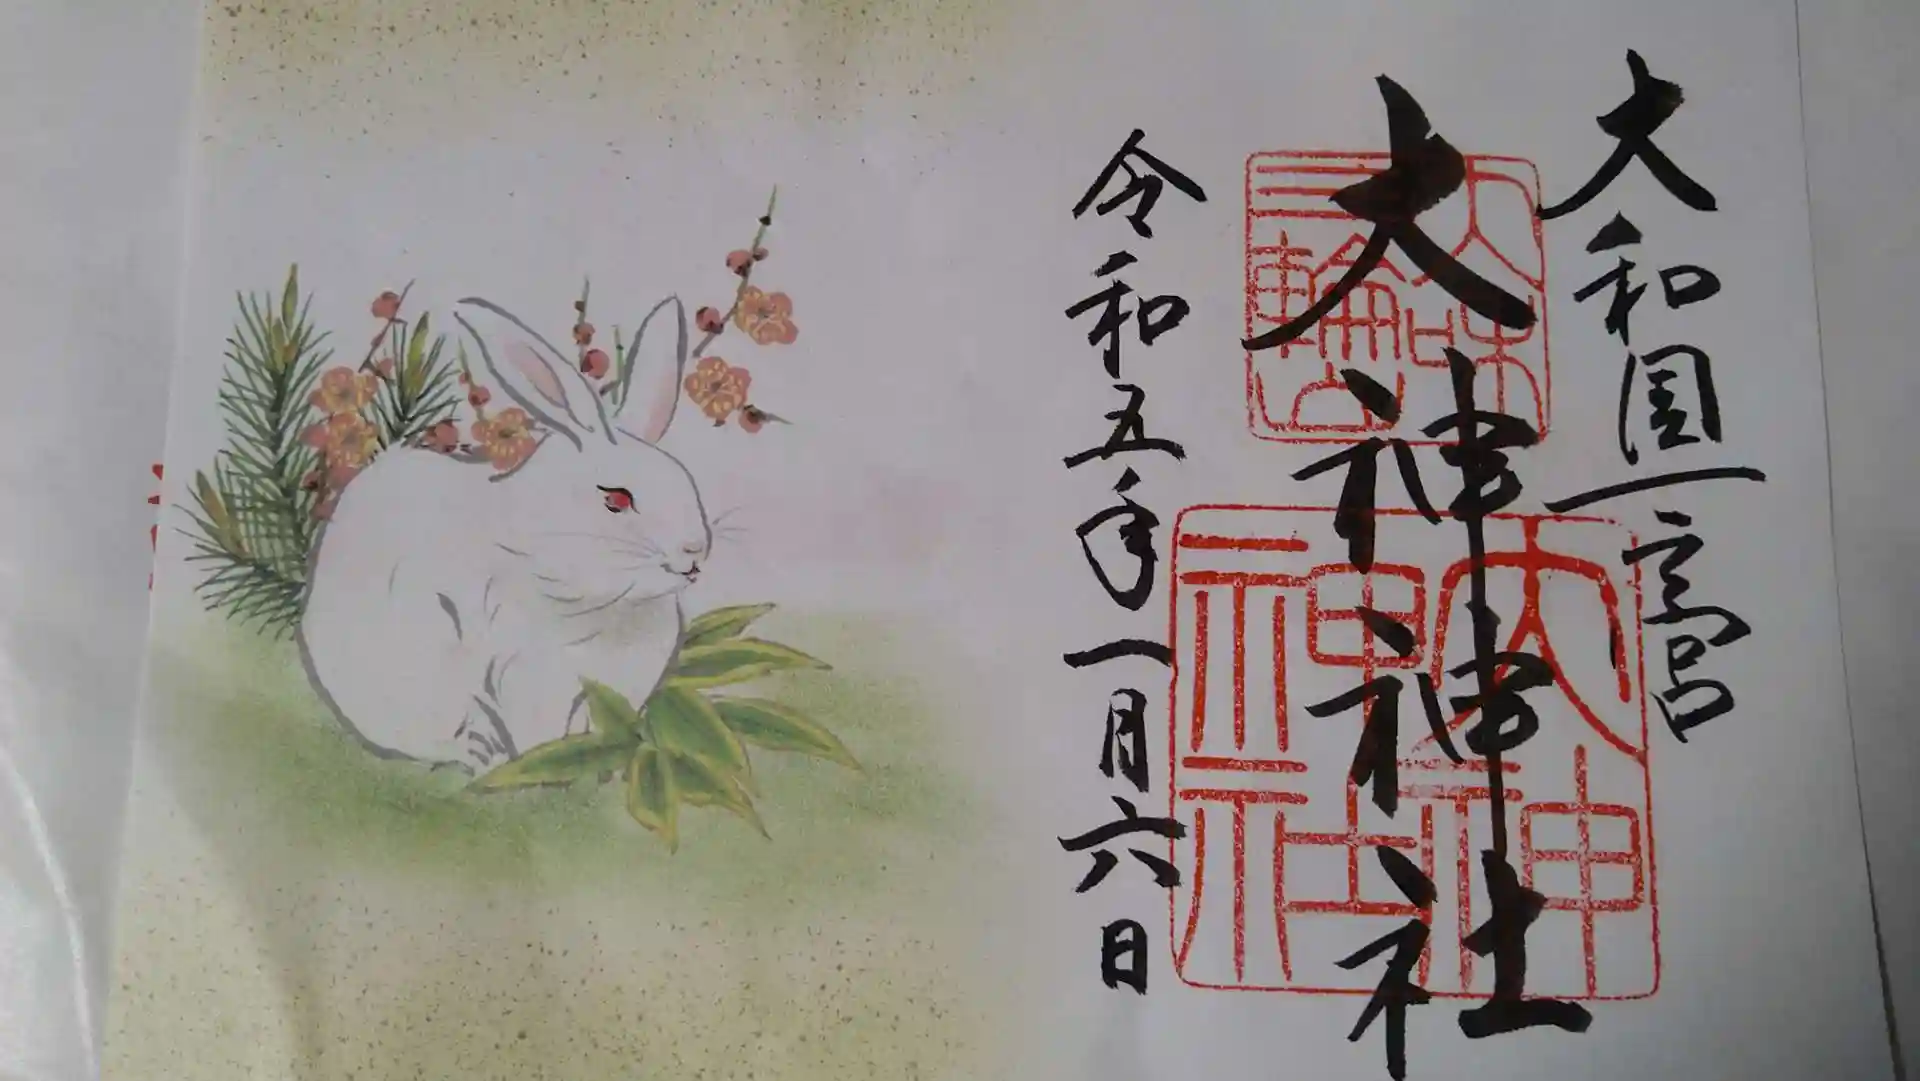 大和国一之宮
大神神社
大和
三輪山
大神
神社
令和五年一月六日